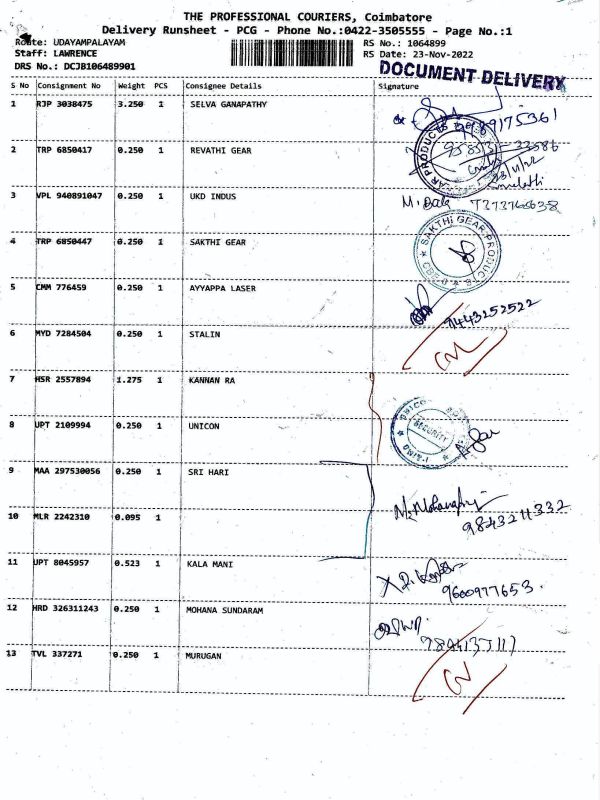 THE PROFESSIONAL COURIERS, Coimbatore
Delivery Runsheet - PCG - Phone No.:0422-3505555 - Page No.:1
Route: UDAYAMPALAYAM RS No.: 1064899
Staff: LAWRENCE RS Date: 23-Nov-2022
DRS No.: DCJB106489901
DOCUMENT DELIVERY
S No Consignment No Weight PCS Consignee Details Signature
1 RJP 3038475 3.250 1 SELVA GANAPATHY
2 TRP 6850417 0.250 1 REVATHI GEAR
3 VPL 940891047 0.250 1 UKD INDUS
4 TRP 6850447 0.250 1 SAKTHI GEAR
SAKTHI GEAR PRODUCTS
5 CMM 776459 0.250 1 AYYAPPA LASER
9443252522
6 MYD 7284504 0.250 1 STALIN
7 HSR 2557894 1.275 1 KANNAN RA
8 UPT 2109994 0.250 1 UNICON
SECURITY
9 MAA 297530056 0.250 1 SRI HARI
9843211332
10 MLR 2242310 0.095 1
11 UPT 8045957 0.523 1 KALA MANI
9600977653.
12 HRD 326311243 0.250 1 MOHANA SUNDARAM
13 TVL 337271 0.250 1 MURUGAN